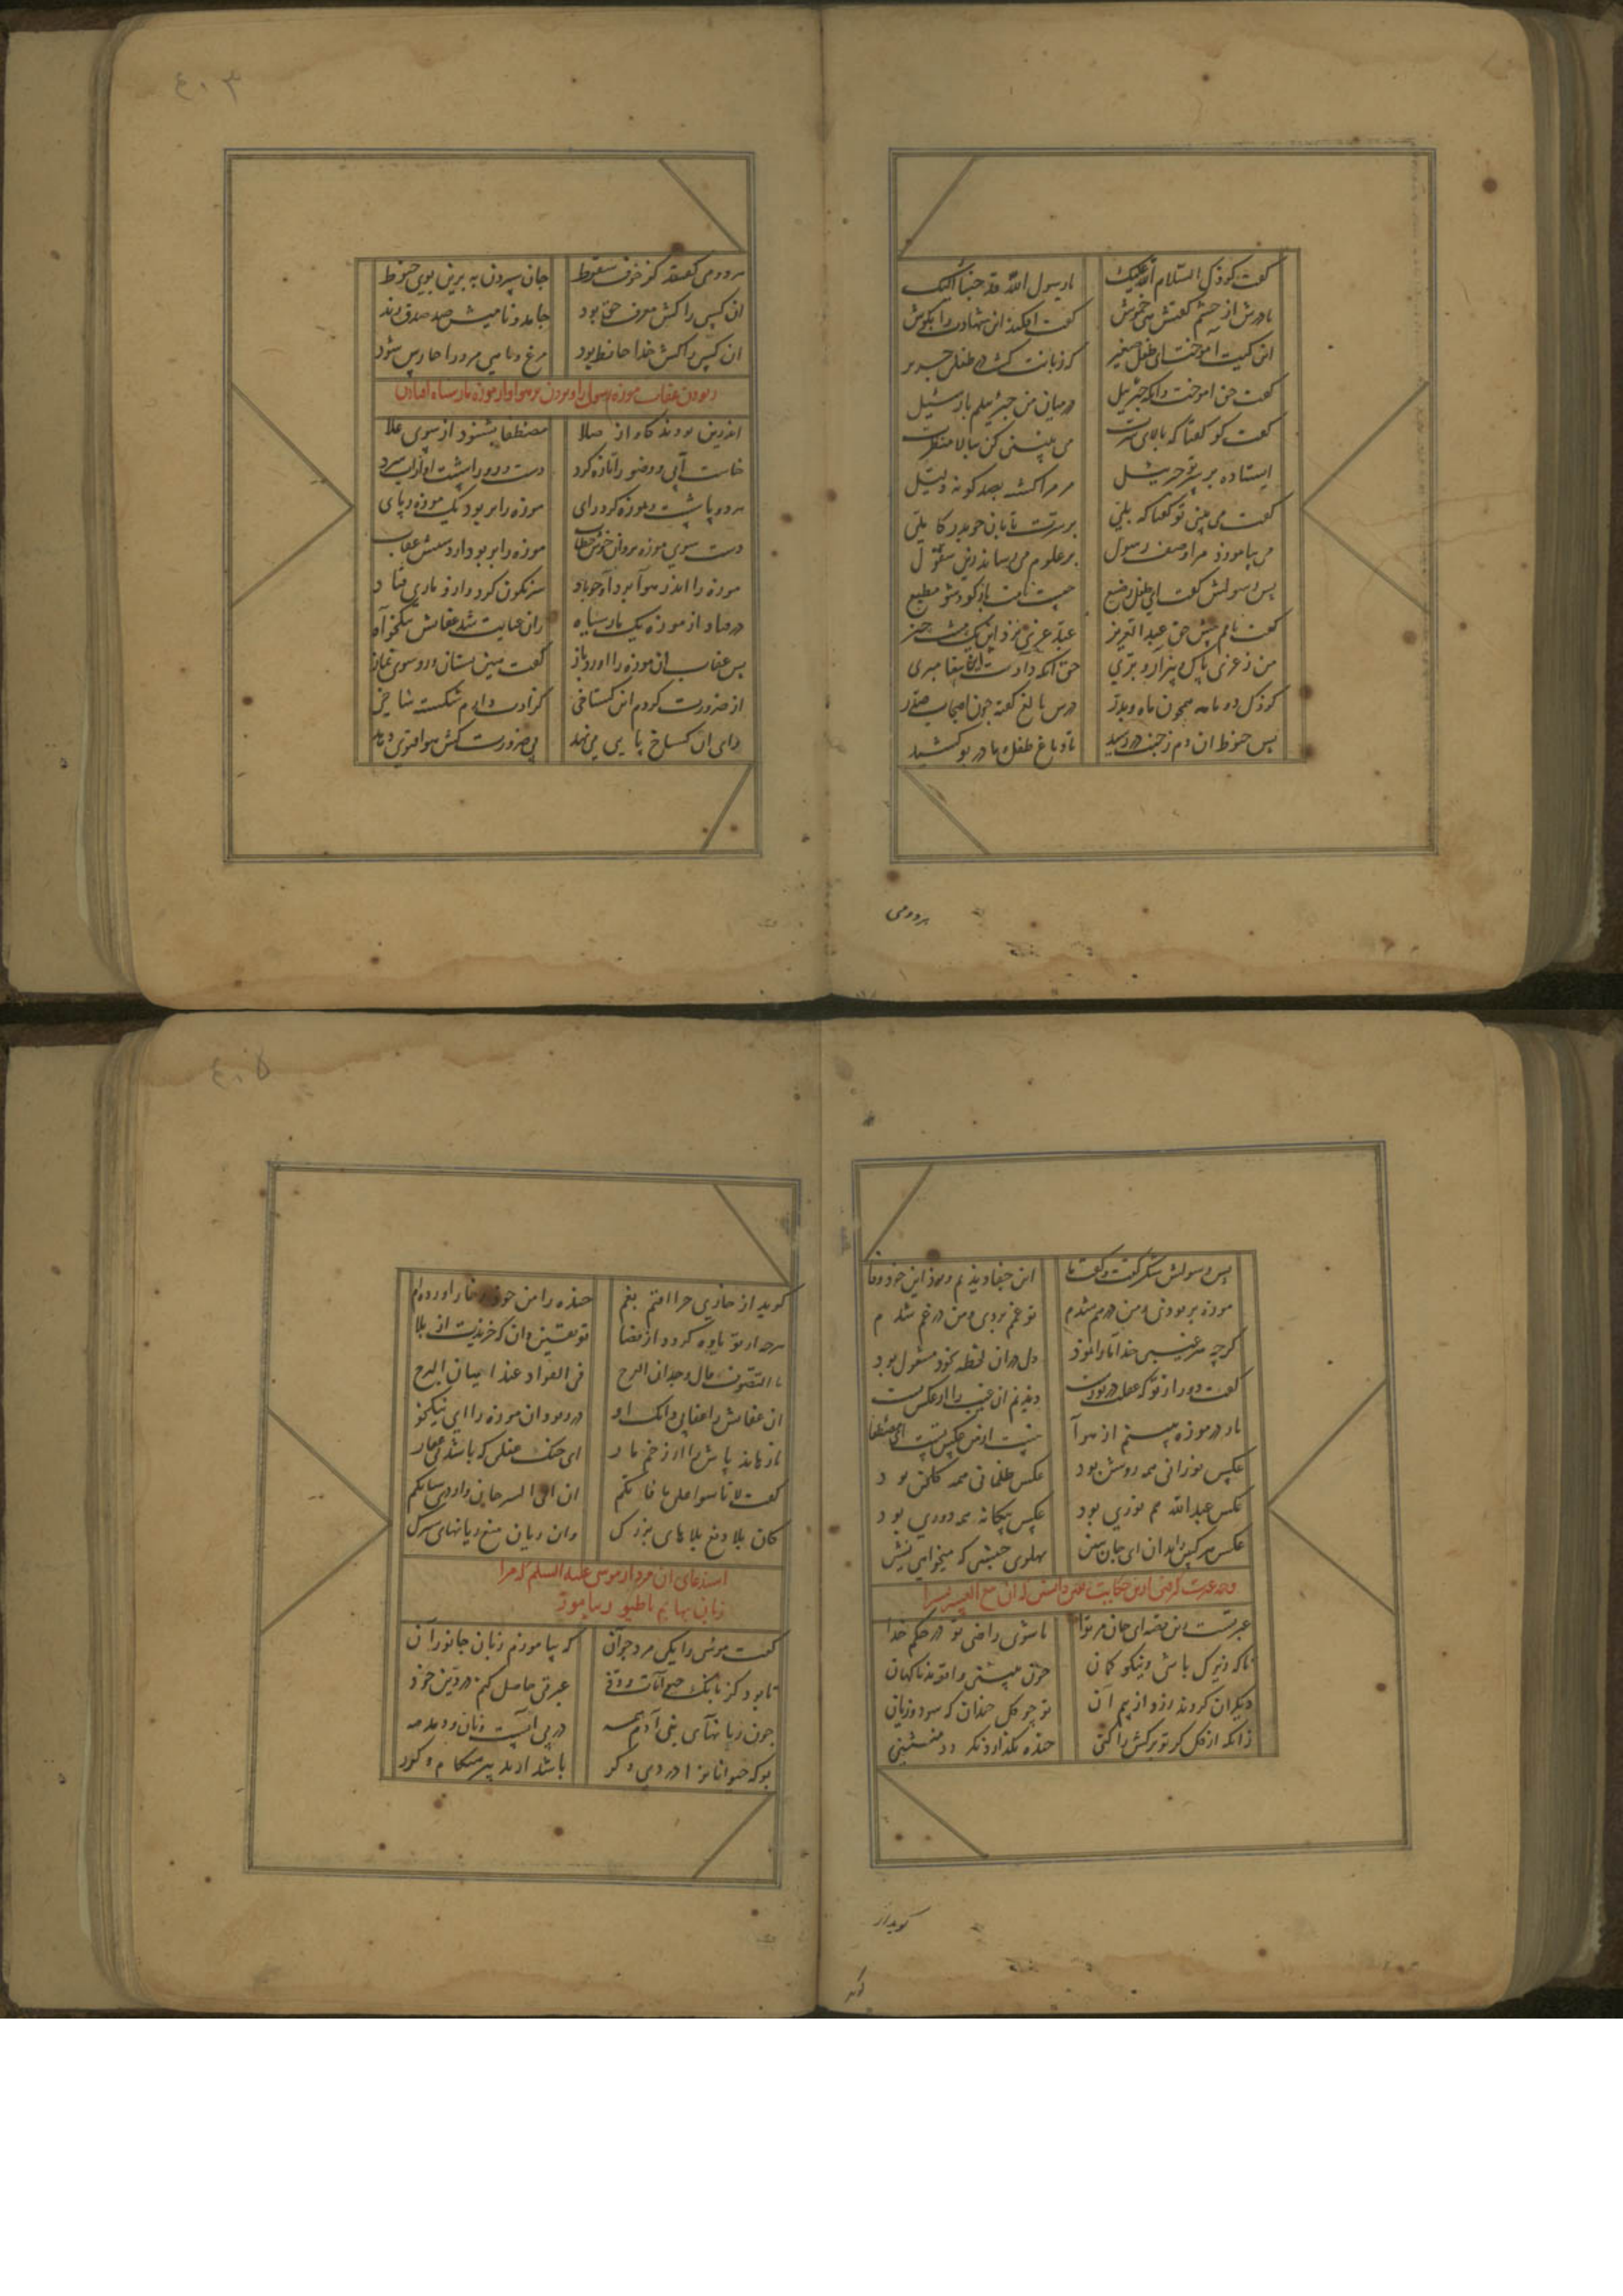 گفت کودک السلام الله علیک یا رسول الله قد جئنا الیک
مادرش از خشم گفتش هی خموش کیت افکند این شهادت را بگوش
این کیت آموخت ای طفل صغیر که زبانت گشت در طفلی جریر
گفت حق آموخت وانگه جبرئیل در میان من جبرئیلم باز سئیل
گفت کو گفتا که بالای سرت می نبینی کن ببالا منظرت
ایستاده بر سر تو جبرئیل مر مرا گشته بصد گونه دلیل
گفت می بینی تو گفتا که بلی بر سرت تابان چو بدر کاملی
می بیاموزد مرا وصف رسول بر علوم می رساند زین سفول
پس رسولش گفت ای طفل رضیع چیست نامت بازگو و شو مطیع
گفت نامم پیش حق عبد العزیز عبد عزی نزد این یک مشت حیز
من ز عزی پاک و بیزار و بری حق آنکه دادت این پیغامبری
کودک دو ماهه همچون ماه بدر درس بالغ گفته چون اصحاب صدر
پس حنوط آن دم ز جنت در رسید تا دماغ طفل و مادر بو کشید
هر دو می
٤٠٣
هر دو می گفتند کز خوف سقوط جان سپردن به برین بوی حنوط
آن کسی را کش معرف حق بود جامد و نامیش صد صدق زند
آن کسی را کش خدا حافظ بود مرغ و ماهی مر ورا حارس شود
ربودن عقاب موزه رسول را و بردن بر هوا و از موزه مار سیاه افتادن
اندرین بودند کاواز صلا مصطفا بشنود از سوی علا
خاست آبی و وضو را تازه کرد دست و رو را شست او زان آب سرد
هر دو پا شست و بموزه کرد رای موزه را بربود یک موزه ربای
دست سوی موزه برد آن خوش خطاب موزه را بربود از دستش عقاب
موزه را اندر هوا برد او چو باد سرنگون کرد و ازو ماری فتاد
در فتاد از موزه یک مار سیاه زان عنایت شد عقابش نیکخواه
پس عقاب آن موزه را آورد باز گفت هین بستان و رو سوی نماز
از ضرورت کردم این گستاخی کز ادب دارم شکسته شاخی
وای آن کستاخ پایی می نهد بی ضرورت کش هوا فتوی دهد
پس رسولش شکر گفت و گفت ما این جفا دیدیم و بود این خود وفا
موزه بربودی و من درهم شدم تو غمم بردی و من در غم شدم
گرچه هر غیبی خدا ما را نمود دل در آن لحظه بخود مشغول بود
گفت دور از تو که غفلت در تو رست دیدنم آن غیب را از عکس تست
مار در موزه ببینم از هوا نیست از من عکس تست ای مصطفا
عکس نورانی همه روشن بود عکس ظلمانی همه گلخن بود
عکس عبد الله همه نوری بود عکس بیگانه همه دوری بود
عکس هر کس را بدان ای جان ببین پهلوی جنسی که میخواهی نشین
وجه عبرت گرفتن ازین حکایت و یقین دانستن که ان مع العسر یسرا
عبرتست این قصه ای جان مر ترا تا شوی راضی تو در حکم خدا
تا که زیرک باشی و نیکو گمان چون ببینی واقعه ناگهان
دیگران گردند زرد از بیم آن تو چو گل خندان گه سود و زیان
زانکه از گل گر تو برگش را کنی خنده نگذارد نگردد منثنی
گوید از
گوید
٤٠٥
گوید از خاری چرا افتم بغم خنده را من خود ز خار آورده ام
هرچه از تو یاوه گردد از قضا تو یقین دان که خریدت از بلا
ما التصوف قال وجدان الفرح فی الفؤاد عند اتیان الترح
آن عقابش را عقابی دان که او در ربود آن موزه را ای نیکخو
تا رهاند پاش را از زخم مار ای خنک عقلی که باشد بی غبار
گفت لا تأسوا علی ما فاتکم ان اتی السرحان وأردی شاتکم
کان بلا دفع بلاهای بزرگ وان زیان منع زیانهای سترگ
استدعای آن مرد از موسی علیه السلم که مرا
زبان بهایم با طیور بیاموز
گفت موسی را یکی مرد جوان که بیاموزم زبان جانوران
تا بود کز بانگ حیوانات و دد عبرتی حاصل کنم در دین خود
چون زبانهای بنی آدم همه در پی آبست و نان و دمدمه
بوکه حیوانات را دردی دگر باشد از تدبیر هنگام گذر